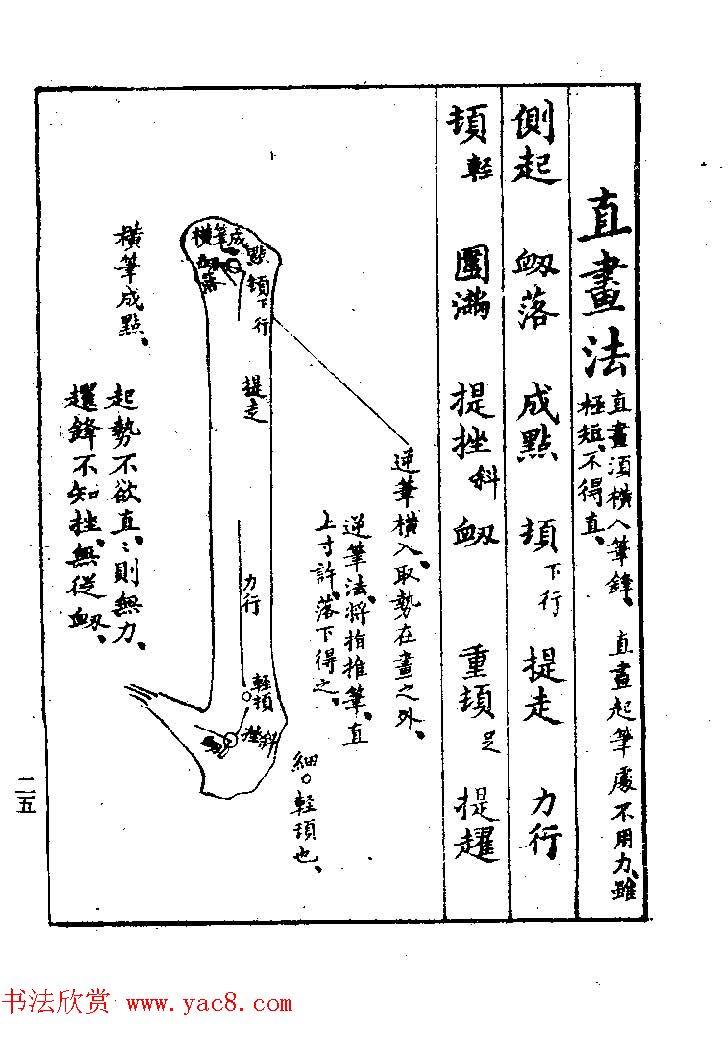 直畫法
直畫須橫入筆鋒、直畫起筆處不用力、雖
極短、不得直、
側起 衂落 成點 頓下行 提走 力行
頓輕 圓滿 提挫斜 衂 重頓足 提趯
逆筆橫入、取勢在畫之外、
逆筆法、將指推筆、直
上寸許、落下得之、
細〇輕頓也、
橫筆成點
衂落
頓下行
提走
力行
輕頓
挫斜
衂
橫筆成點、
起勢不欲直、:則無力、
趯鋒不知挫、無從衂、
二五
书法欣赏 www.yac8.com